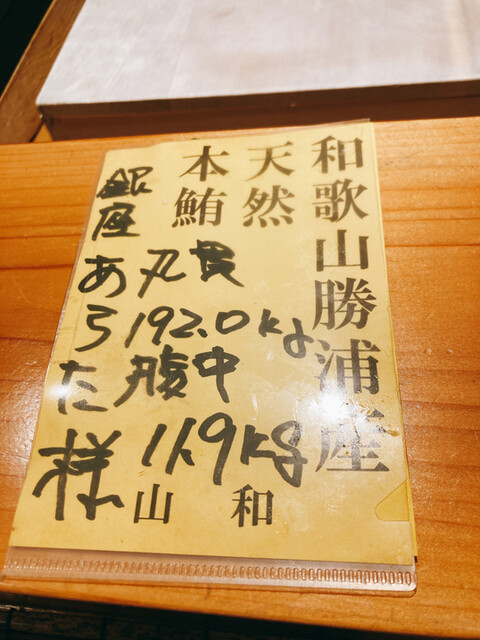 和歌山勝浦産
天然
本鮪
丸貫
192.0kg
腹中
11.9kg
銀座
あらた様
山和